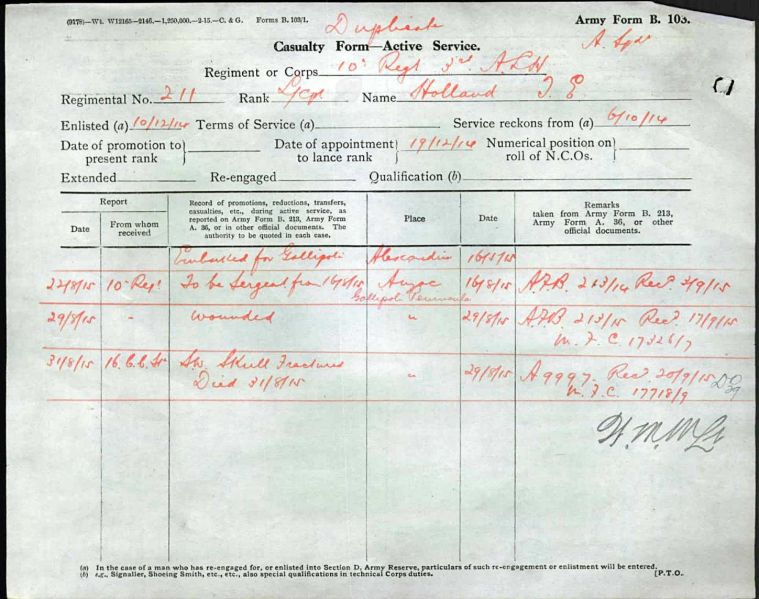 (9178)—Wt. W12165—2146.—1,250,000.—2-15.—C. & G. Forms B. 103/1. Duplicate Army Form B. 103.
Casualty Form—Active Service. A. Sqd
Regiment or Corps 10th Regt 3rd A.L.H
Regimental No. 211 Rank L/cpl Name Holland J. E
Enlisted (a) 10/12/14 Terms of Service (a) Service reckons from (a) 6/10/14
Date of promotion to present rank } Date of appointment to lance rank } 19/12/14 Numerical position on roll of N.C.Os. }
Extended Re-engaged Qualification (b)
Report
Date
From whom received
Record of promotions, reductions, transfers, casualties, etc., during active service, as reported on Army Form B. 213, Army Form A. 36, or in other official documents. The authority to be quoted in each case.
Place
Date
Remarks
taken from Army Form B. 213, Army Form A. 36, or other official documents.
Embarked for Gallipoli Alexandria 16/5/15
22/8/15 10th Regt To be Sergeant from 16/8/15 Anzac 16/8/15 A.F.B. 213/14 Recd 3/9/15
Gallipoli Peninsula
29/8/15 - Wounded " 29/8/15 A.F.B. 213/15 Recd 17/9/15
M. F. C. 17326/7
31/8/15 16. C.C. Stn S.W. Skull Fractured " 29/8/15 A 9997. Recd 20/9/15
Died 31/8/15 M. F. C. 17718/9
(a) In the case of a man who has re-engaged for, or enlisted into Section D, Army Reserve, particulars of such re-engagement or enlistment will be entered.
(b) e.g., Signaller, Shoeing Smith, etc., etc., also special qualifications in technical Corps duties. [P.T.O.